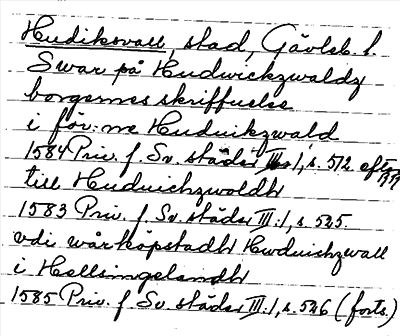 Hudiksvall, stad, Gävleb. l.
Swar på Hudwickzwaldz
borgernes skriffuelse
i för:ne Huduikzwald
1584 Priv. f. Sv. städer III:1, s. 512 efter
till Huduichzwaldh
1583 Priv. f. Sv. städer III:1, s. 525.
vdi wår köpstadh Hwduichzwall
i Hellsingelandh
1585 Priv. f. Sv. städer III:1, s. 526 (forts.)